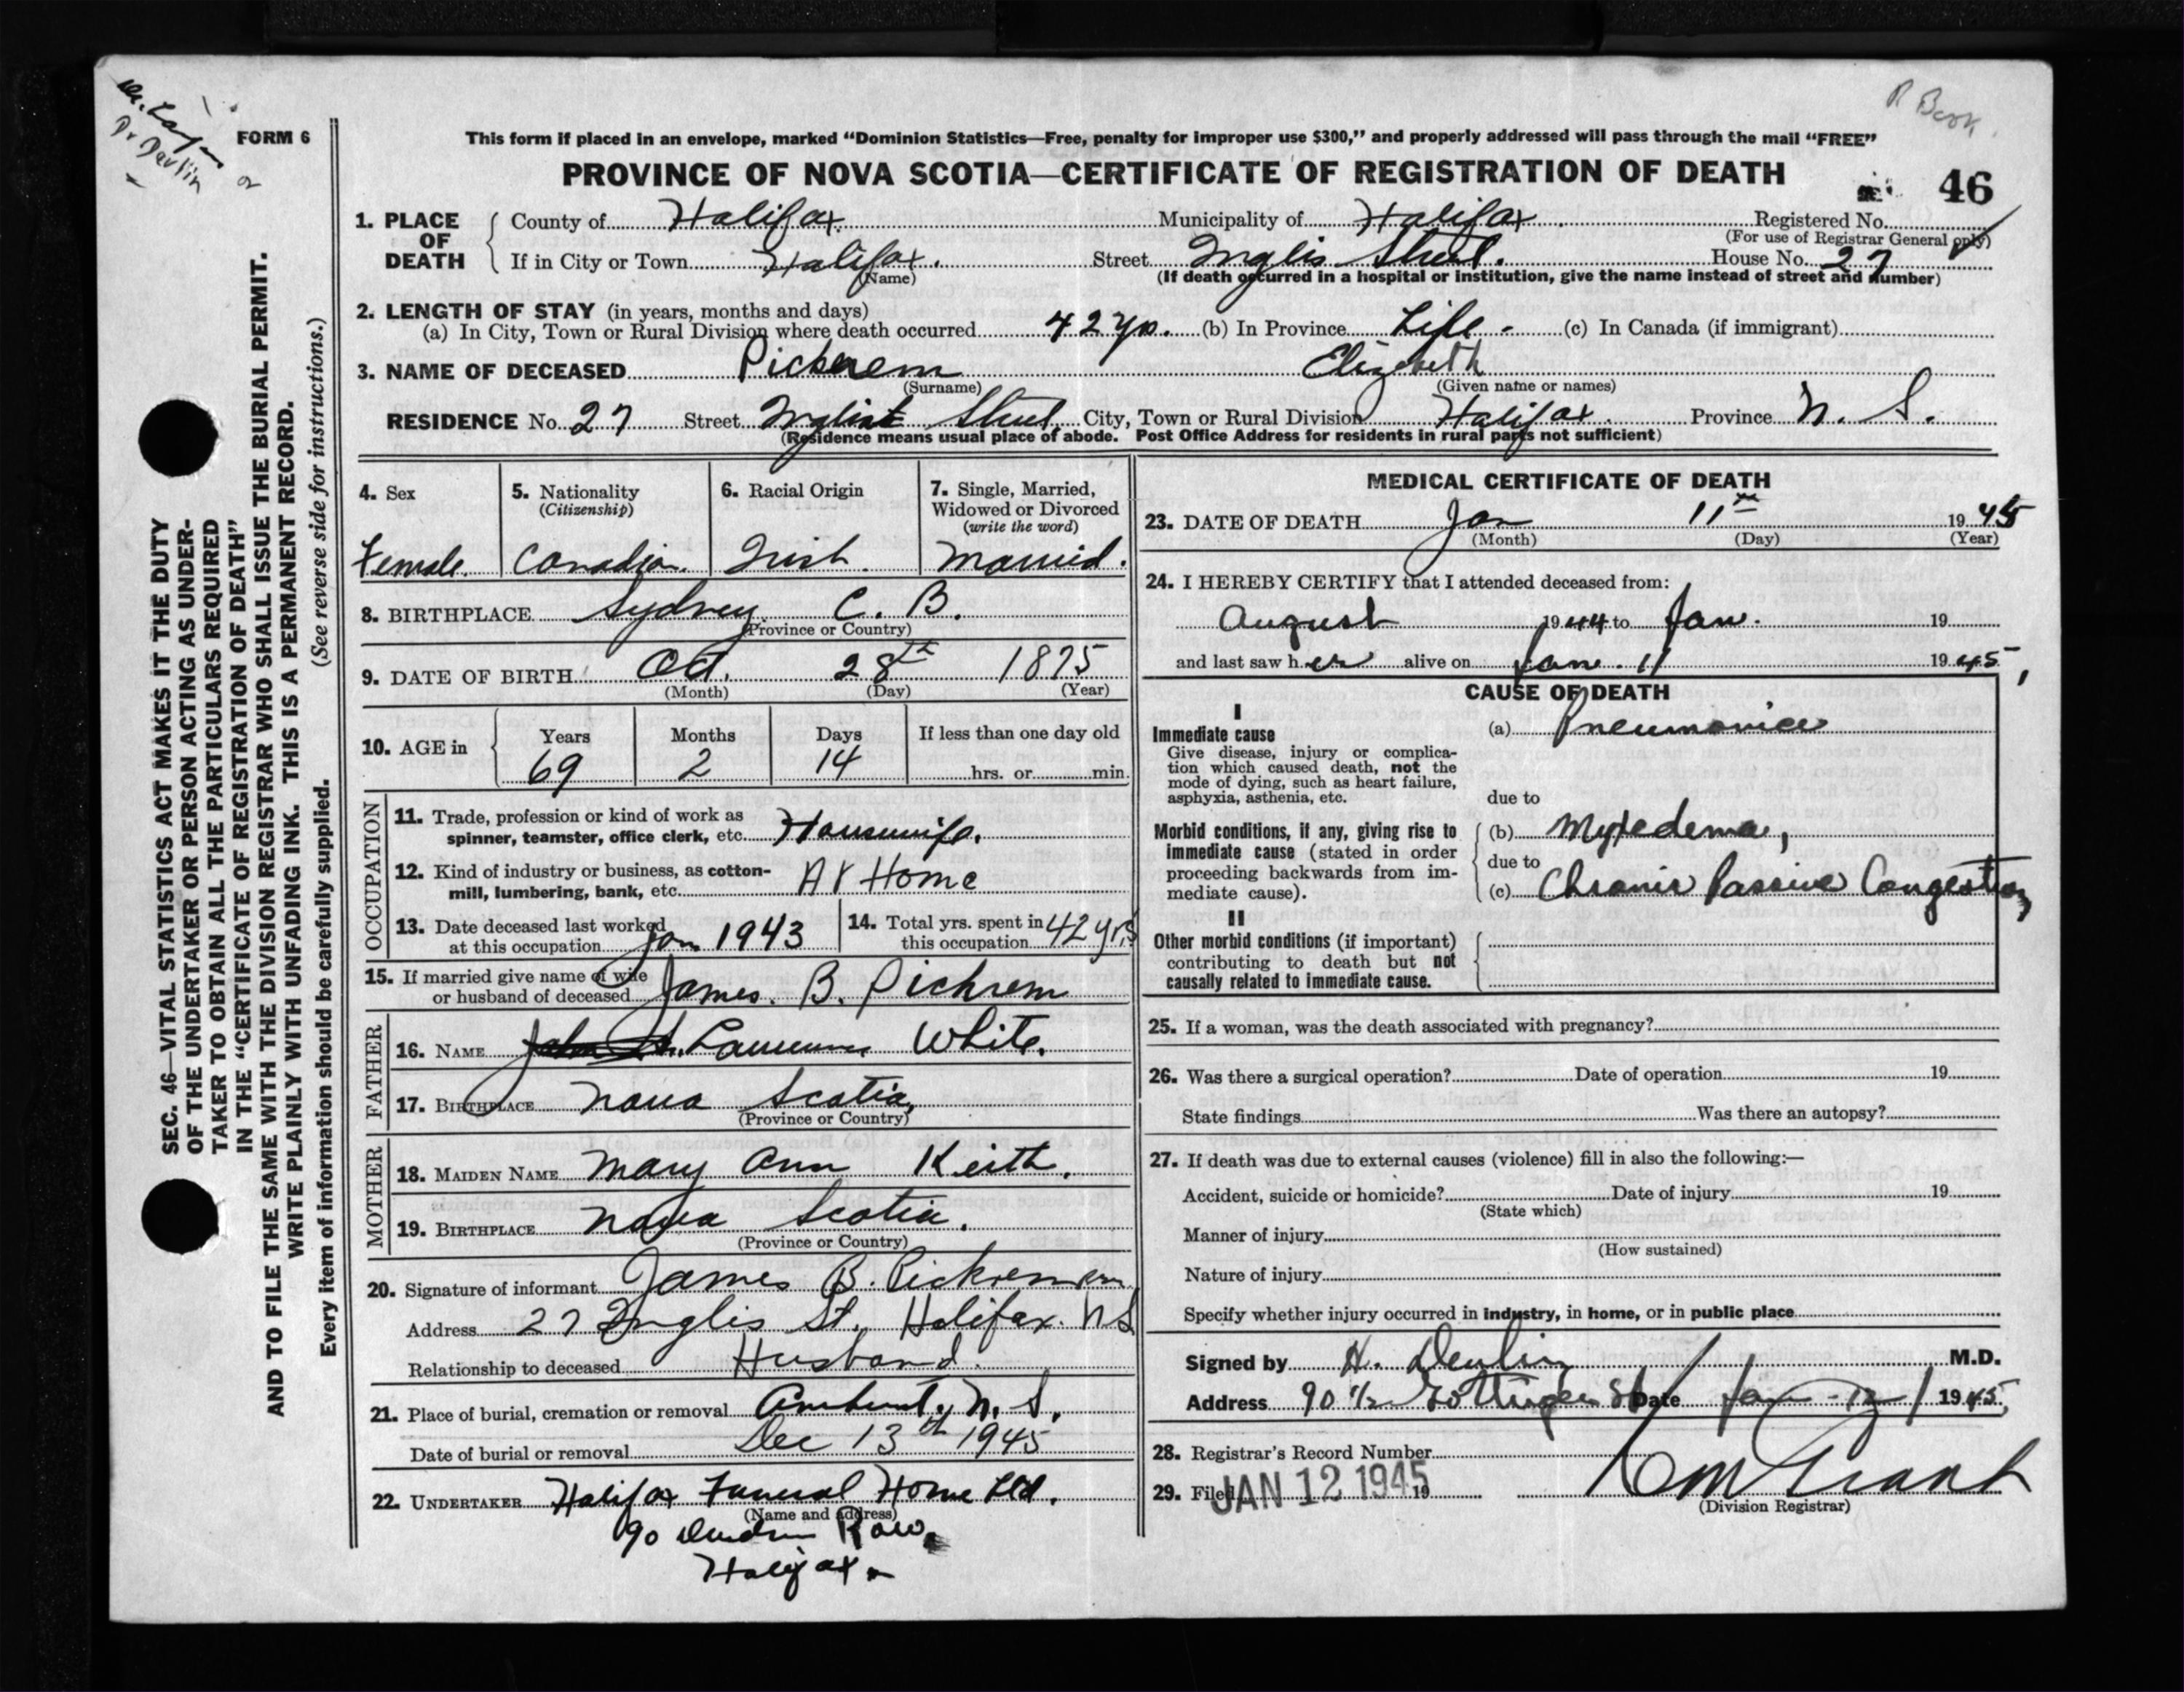 R Book
Dr Devlin
FORM 6
This form if placed in an envelope, marked “Dominion Statistics—Free, penalty for improper use $300,” and properly addressed will pass through the mail “FREE”
PROVINCE OF NOVA SCOTIA—CERTIFICATE OF REGISTRATION OF DEATH
46
1. PLACE OF DEATH
County of Halifax Municipality of Halifax Registered No.
(For use of Registrar General only)
If in City or Town Halifax. Street Inglis Street. House No. 27
(Name) (If death occurred in a hospital or institution, give the name instead of street and number)
2. LENGTH OF STAY (in years, months and days)
(a) In City, Town or Rural Division where death occurred 42 yrs. (b) In Province Life - (c) In Canada (if immigrant)
3. NAME OF DECEASED Pickrem Elizabeth
(Surname) (Given name or names)
RESIDENCE No. 27 Street Inglis Street, City, Town or Rural Division Halifax. Province N. S.
(Residence means usual place of abode. Post Office Address for residents in rural parts not sufficient)
SEC. 46—VITAL STATISTICS ACT MAKES IT THE DUTY
OF THE UNDERTAKER OR PERSON ACTING AS UNDER-
TAKER TO OBTAIN ALL THE PARTICULARS REQUIRED
IN THE “CERTIFICATE OF REGISTRATION OF DEATH”
AND TO FILE THE SAME WITH THE DIVISION REGISTRAR WHO SHALL ISSUE THE BURIAL PERMIT.
WRITE PLAINLY WITH UNFADING INK. THIS IS A PERMANENT RECORD.
Every item of information should be carefully supplied. (See reverse side for instructions.)
4. Sex
Female.
5. Nationality
(Citizenship)
Canadian.
6. Racial Origin
Irish.
7. Single, Married,
Widowed or Divorced
(write the word)
Married.
8. BIRTHPLACE Sydney C. B.
(Province or Country)
9. DATE OF BIRTH Oct. 28th 1875
(Month) (Day) (Year)
10. AGE in
Years Months Days If less than one day old
69 2 14 hrs. or min.
OCCUPATION
11. Trade, profession or kind of work as
spinner, teamster, office clerk, etc. Housewife.
12. Kind of industry or business, as cotton-
mill, lumbering, bank, etc. At Home
13. Date deceased last worked
at this occupation Jan 1943
14. Total yrs. spent in
this occupation 42 yrs
15. If married give name of wife
or husband of deceased James. B. Pickrem
FATHER
16. NAME White.
17. BIRTHPLACE Nova Scotia,
(Province or Country)
MOTHER
18. MAIDEN NAME Mary Ann Keith.
19. BIRTHPLACE Nova Scotia.
(Province or Country)
20. Signature of informant James B. Pickrem
Address 27 Inglis St. Halifax. N S
Relationship to deceased Husband.
21. Place of burial, cremation or removal Amherst, N. S.
Date of burial or removal Dec 13th 1945
22. UNDERTAKER Halifax Funeral Home Ltd.
(Name and address)
90 Row,
Halifax.
MEDICAL CERTIFICATE OF DEATH
23. DATE OF DEATH Jan 11th 1945
(Month) (Day) (Year)
24. I HEREBY CERTIFY that I attended deceased from:
August 1944 to Jan. 19
and last saw her alive on Jan. 11 1945,
CAUSE OF DEATH
I
Immediate cause
Give disease, injury or complica-
tion which caused death, not the
mode of dying, such as heart failure,
asphyxia, asthenia, etc.
(a) Pneumonia
due to
Morbid conditions, if any, giving rise to
immediate cause (stated in order
proceeding backwards from im-
mediate cause).
(b) Myxedema,
due to
(c) Chronic Passive Congestion
II
Other morbid conditions (if important)
contributing to death but not
causally related to immediate cause.
25. If a woman, was the death associated with pregnancy?
26. Was there a surgical operation? Date of operation 19
State findings Was there an autopsy?
27. If death was due to external causes (violence) fill in also the following:—
Accident, suicide or homicide? Date of injury 19
(State which)
Manner of injury
(How sustained)
Nature of injury
Specify whether injury occurred in industry, in home, or in public place
Signed by H. Devlin M.D.
Address 90 1/2 Gottingen St Date Jan - 12 / 1945,
28. Registrar's Record Number
29. Filed JAN 12 1945 19
(Division Registrar)